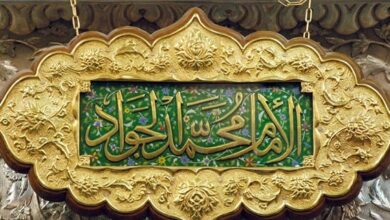 الإمام محمّد الجواد